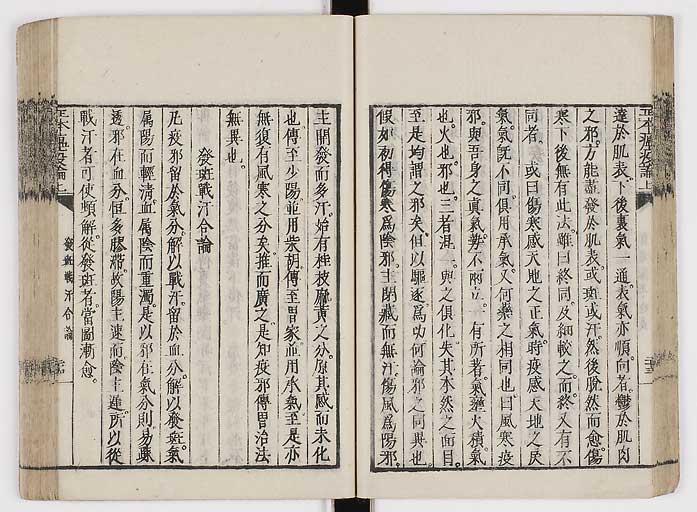 達於肌表下後裏氣一通表氣亦順向者鬱於肌肉
之邪方能盡發於肌表或斑或汗然後脫然而愈傷
寒下後無有此法雖曰終同及細較之而終又有不
同者。或曰傷寒感天地之正氣時疫感天地之戾
氣氣既不同俱用承氣又何藥之相同也曰風寒疫
邪與吾身之真氣勢不兩立一有所著氣壅火積氣
也火也邪也三者混一與之俱化失其本然之面目
至是均謂之邪矣但以驅逐為功何論邪之同異也
假如初得傷寒為陰邪主閉藏而無汗傷風為陽邪
主開發而多汗始有桂枝麻黃之分原其感而未化
也傳至少陽並用柴胡傳至胃家並用承氣至是亦
無復有風寒之分矣推而廣之是知疫邪傳胃治法
無異也
發斑戰汗合論
凡疫邪留於氣分解以戰汗留於血分解以發斑氣
属陽而輕清血属陰而重濁是以邪在氣分則易疎
透邪在血分恒多膠滯故陽主速而陰主遲所以從
戰汗者可使頓解從發斑者當圖漸愈
發斑戰汗合論